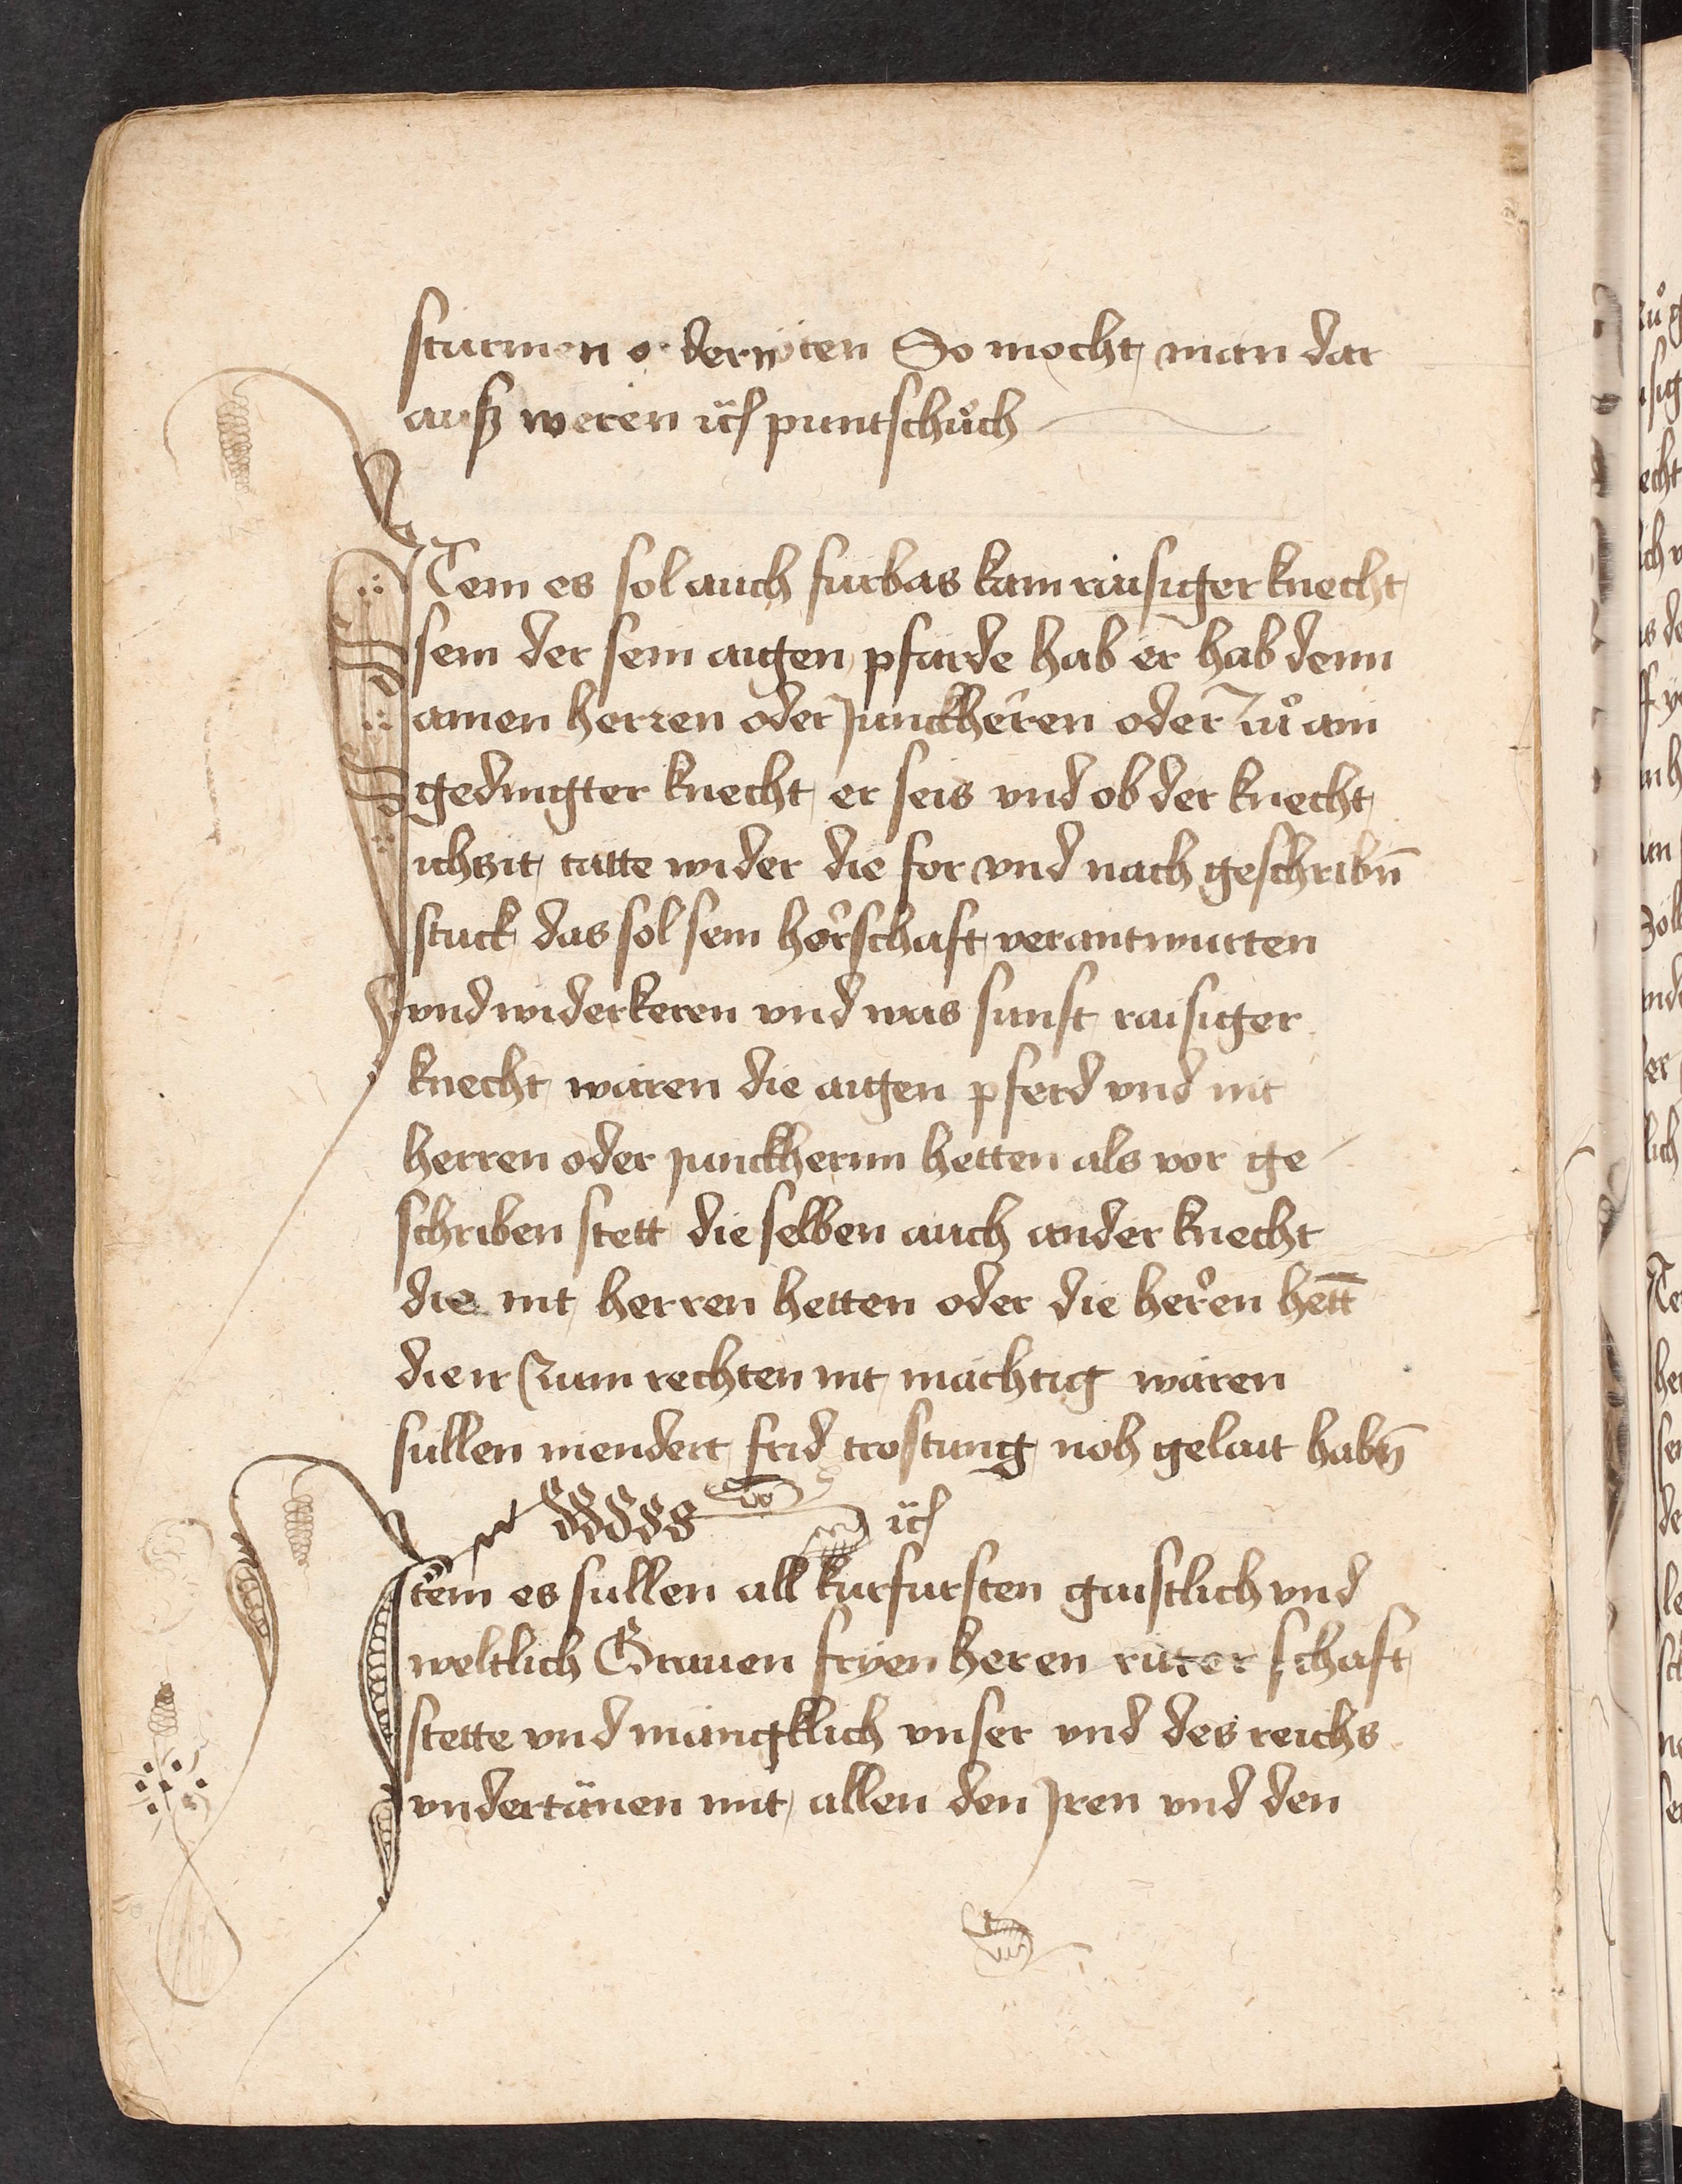 sturmen oder nöten So mocht man dar
ausz weren ꝛc puntschůch
Item es sol auch furbas kain raisiger knecht
sein der sein aigen pfärde hab er hab denn
ainen herren oder Junckheren oder zů ain
gedingter knecht er seis vnd ob der knecht
ichtzit tätte wider die for vnd nach geschribn̄
stuck das sol sein herschaft verantwurten
vnd widerkeren vnd was sunst raisiger
knecht wären die aigen pferd vnd nit
herren oder junckherrn hetten als vor ge
schriben stett die selben auch ander knecht
die nit herren hetten oder die heren hett̄
die ir zum rechten nit mächtig wären
sullen niendert frid trostung noh gelait habn̄
ꝛc
Item es sullen all kurfursten gaistlich vnd
weltlich Grauen fryen heren riter schaft
stette vnd mängklich vnser vnd des reichs
vndertänen mit allen den Jren vnd den